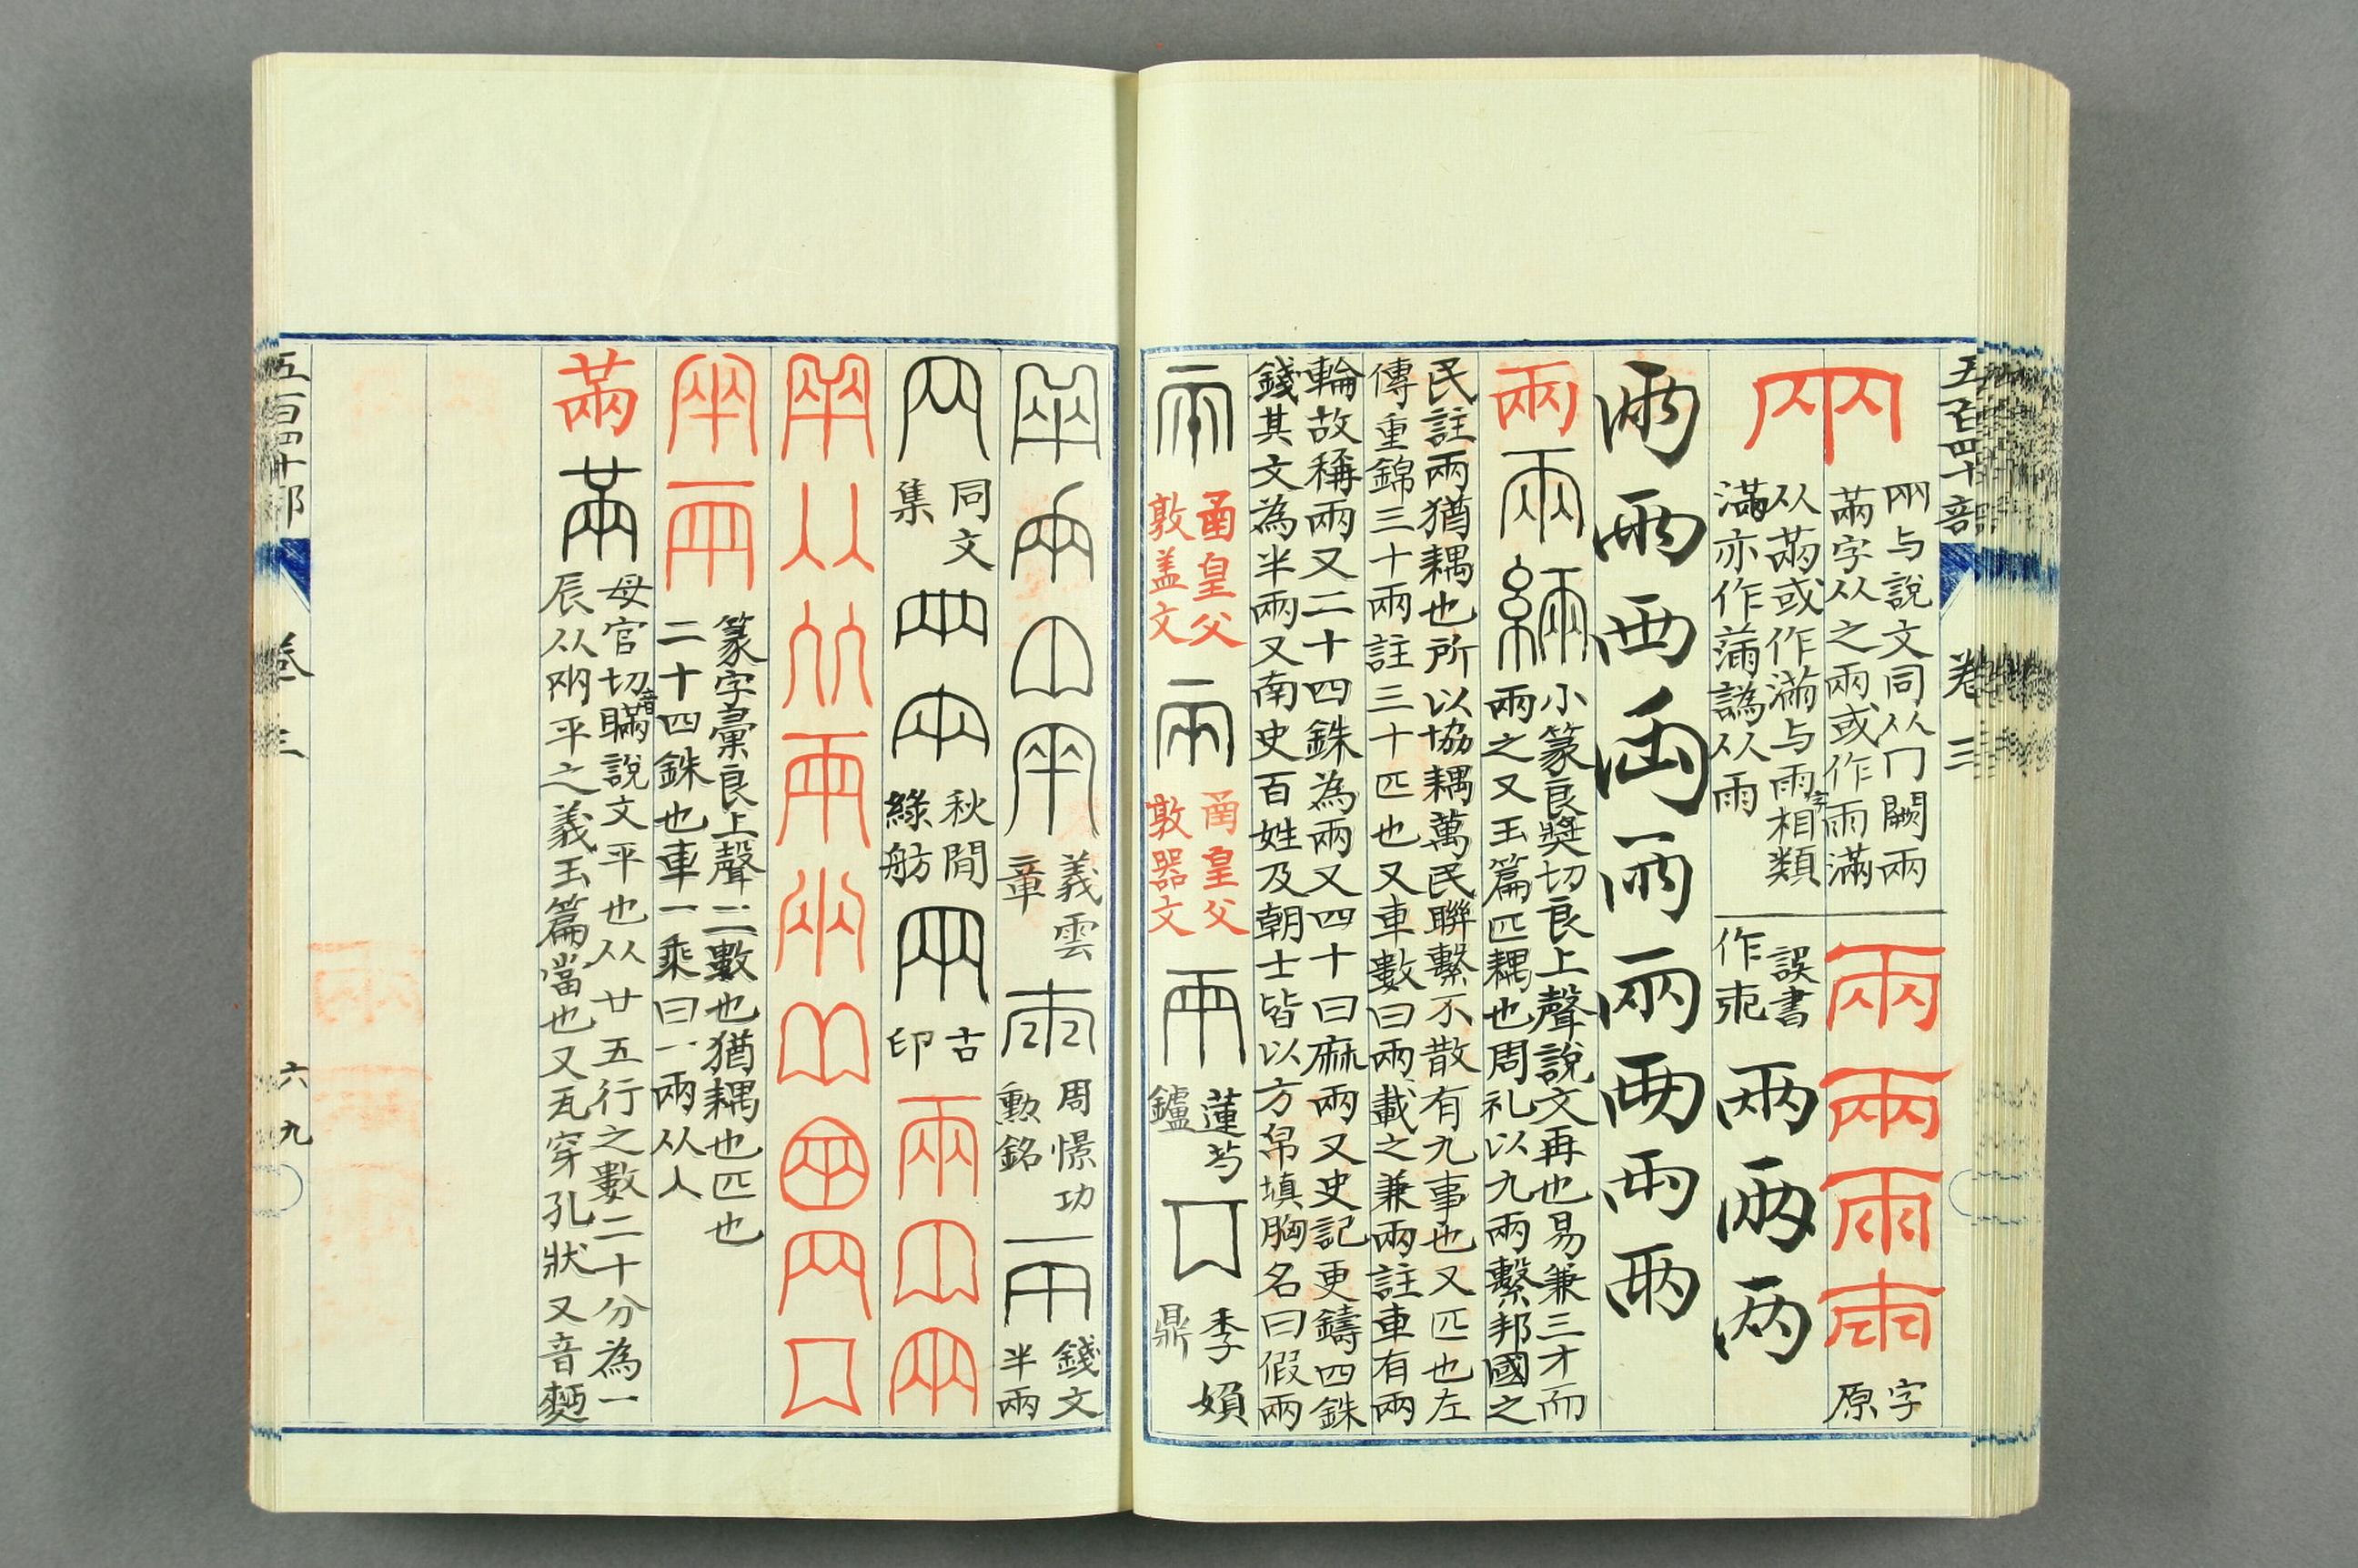 五百四十部 卷三
㒳
㒳与說文同从冂闕兩
㒼字从之兩或作雨滿
从㒼或作滿与雨字相類
滿亦作蒲譌从雨
兩 兩 兩 兩
字
原
誤書
作
兩 兩 兩
兩 兩 兩 兩 兩 兩 兩 兩 兩
兩 兩 緉
小篆良獎切良上聲說文再也易兼三才而
兩之又玉篇匹耦也周礼以九兩繫邦國之
民註兩猶耦也所以協耦萬民聯繫不散有九事也又匹也左
傳重錦三十兩註三十匹也又車數曰兩載之兼兩註車有兩
輪故稱兩又二十四銖為兩又四十曰麻兩又史記更鑄四銖
錢其文為半兩又南史百姓及朝士皆以方帛填胸名曰假兩
兩
皇父
敦盖文
兩
皇父
敦器文
兩
蓮芍
鑪
季媍
鼎
義雲
章
周憬功
勲銘
錢文
半兩
同文
集
秋閒
綠舫
古
印
篆字彙良上聲二數也猶耦也匹也
二十四銖也車一乘曰一兩从人
㒼 㒼
母官切音瞞說文平也从廿五行之數二十分為一
辰从㒳平之義玉篇當也又瓦穿孔狀又音
五百四十部 卷三 六九